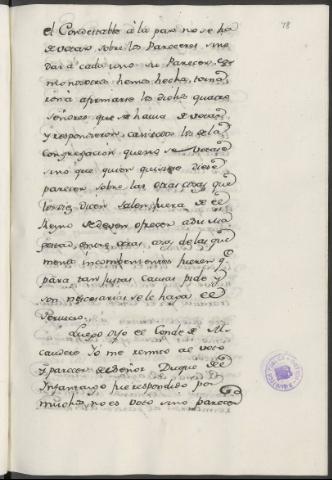 78
el Condestable â la para no se ha
de votar sobre los Pareceres sino
dar â cada uno su Parecer, de
mo nosotros hemos hecho, torna
ron â afirmarse los dichos quatro
Señores que se havia de votar
y respondieron casi todos los de la
Congregacion que no se votase
sino que quien quisiere diese
parecer sobre las otras cosas que
los diez dicen salen fuera de el
Reyno se deven ofrecer a su Ma
gestad, entre otras cosas de las que
menos incombenientes fueren qe
pâra tan justas causas pide y
son necesarias se le haga el
servicio.
Luego dijo el Conde de
Yo me remito al voto
y parecer de el Señor Duque de el
Infantazgo fue respondido por
muchos no es voto sino parecer